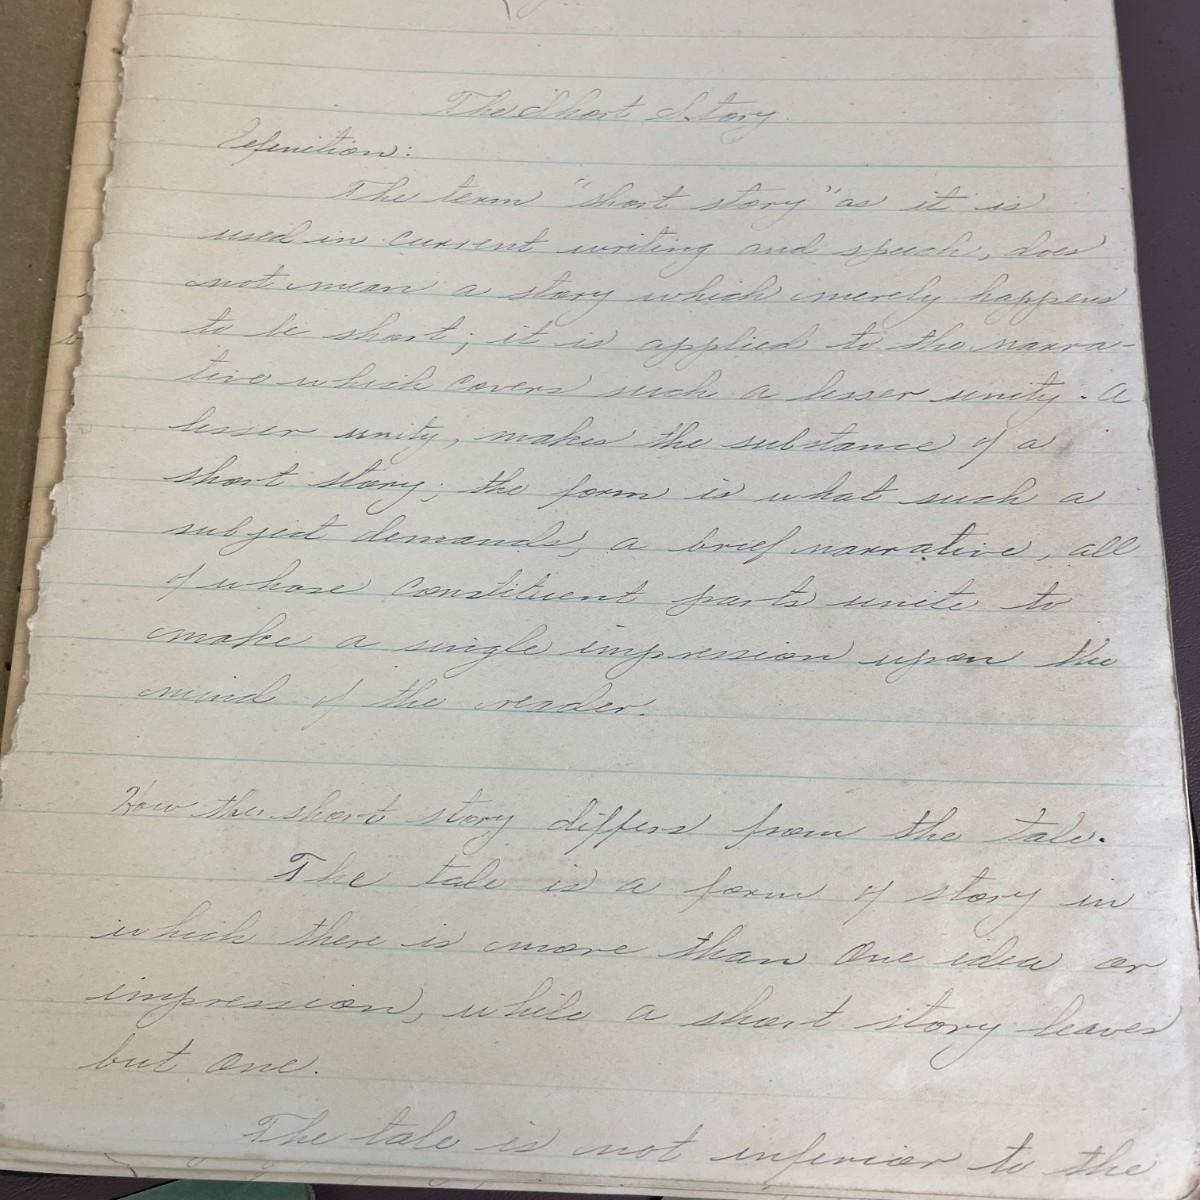 The Short Story.
Definition:
The term "short story" as it is
used in current writing and speech, does
not mean a story which merely happens
to be short; it is applied to the narra-
tive which covers such a lesser unity. A
lesser unity, makes the substance of a
short story; the form is what such a
subject demands, a brief narrative, all
of whose constituent parts unite to
make a single impression upon the
mind of the reader.
How the short story differs from the tale.
The tale is a form of story in
which there is more than one idea or
impression, while a short story leaves
but one.
The tale is not inferior to the